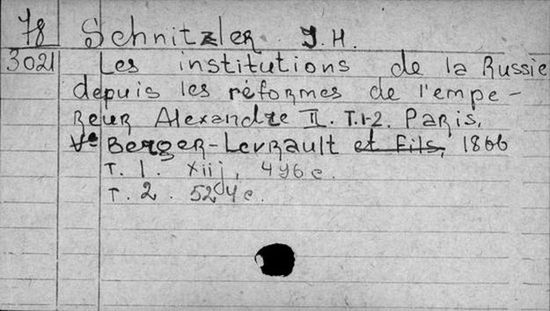 78 Schnitzler J.H.
3021 Les institutions de la Russie
depuis les réformes de l'empe-
reur Alexandre II. T.1-2. Paris,
Ve Berger-Levrault et fils, 1866
T. 1. xiij, 496 c.
T. 2. 524 c.